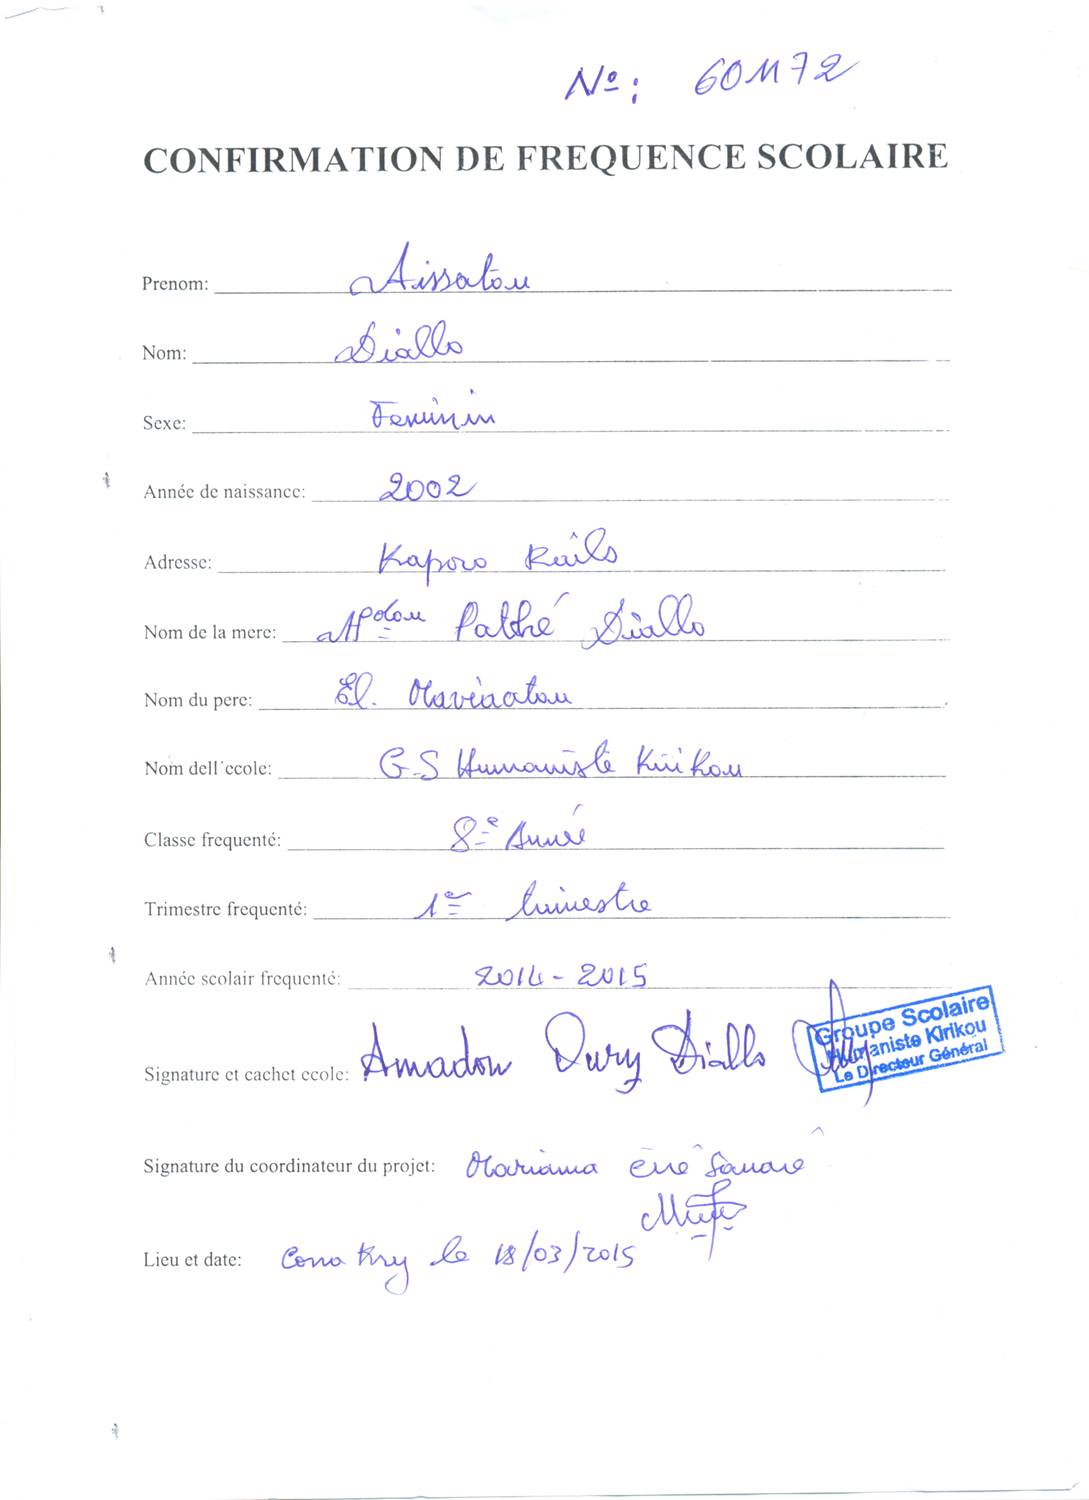 Nº: 601172
CONFIRMATION DE FREQUENCE SCOLAIRE
Prenom: Aissatou
Nom: Diallo
Sexe: Feminin
Année de naissance: 2002
Adresse: Kaporo Rails
Nom de la mere: Pathé Diallo
Nom du pere: El.
Nom dell'ecole: G.S Humaniste Kirikou
Classe frequenté: 8e Année
Trimestre frequenté: 1er trimestre
Année scolair frequenté: 2014-2015
Signature et cachet ecole: Amadou Oury Diallo
Groupe Scolaire
Humaniste Kirikou
Le Directeur Général
Signature du coordinateur du projet: Mariama
Lieu et date: Conakry le 18/03/2015